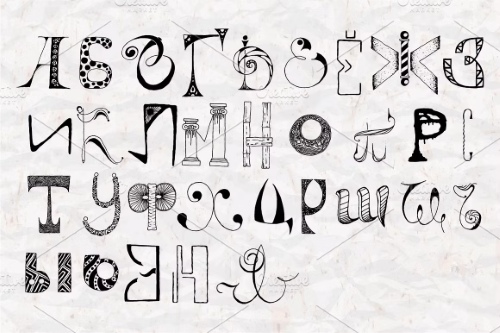 АБВГДЕЁЖЗ
ИКЛМНОПРС
ТУФХЦЧШЩЪ
ЫЬЭЮЯ